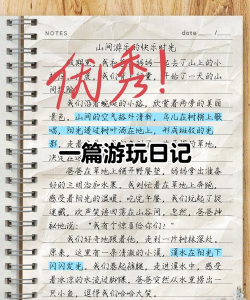 NOTES
DATE
山间游乐的快乐时光
优秀!
我们沿着蜿蜒的小路，欣赏着两旁的美丽
景色。山间的空气格外清新，鸟儿在树梢上歌
唱，阳光透过树叶洒在地上，形成斑驳的光
影。
一篇游玩日记
爸爸在草地上铺开野餐垫，妈妈拿出准备
好的三明治和水果。我则忙着在草地上奔跑，
感受着阳光的温暖。吃完午餐，我们玩起了捉
迷藏，欢声笑语回荡在山谷间。忽然，爸爸神
秘地说：“我有个惊喜给你们！”
我们好奇地跟着他，走到一片树林深处，
原来，这里有一条清澈的小溪，溪水在阳光下
闪闪发光。我们卷起裤腿，走进溪水中，感受
着冰凉的水流带来的快乐。爸爸突然从水里捞出一
只小鱼，逗得我们哈哈大笑。